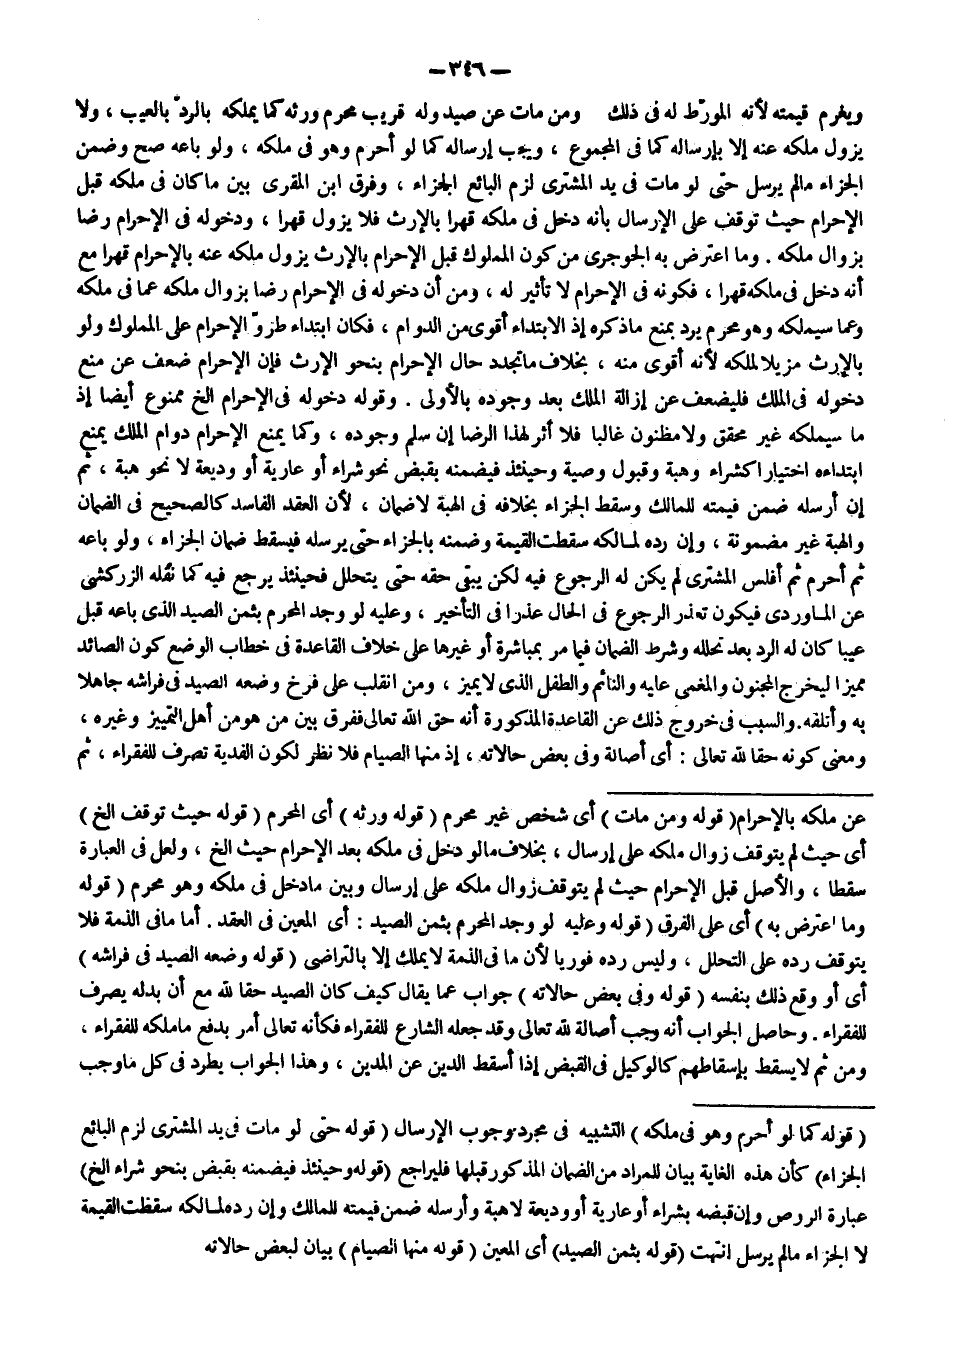 — ٣٤٦ —
ويغرم قيمته لأنه المورّط له فى ذلك ومن مات عن صيد وله قريب محرم ورثه كما يملكه بالردّ بالعيب ، ولا
يزول ملكه عنه إلا بإرساله كما فى المجموع ، ويجب إرساله كما لو أحرم وهو فى ملكه ، ولو باعه صح وضمن
الجزاء مالم يرسل حتى لو مات فى يد المشترى لزم البائع الجزاء ، وفرق ابن المقرى بين ماكان فى ملكه قبل
الإحرام حيث توقف على الإرسال بأنه دخل فى ملكه قهرا بالإرث فلا يزول قهرا ، ودخوله فى الإحرام رضا
بزوال ملكه . وما اعترض به الجوجرى من كون المملوك قبل الإحرام بالإرث يزول ملكه عنه بالإحرام قهرا مع
أنه دخل فى ملكه قهرا ، فكونه فى الإحرام لا تأثير له ، ومن أن دخوله فى الإحرام رضا بزوال ملكه عما فى ملكه
وعما سيملكه وهو محرم يرد بمنع ماذكره إذ الابتداء أقوى من الدوام ، فكان ابتداء طروّ الإحرام على المملوك ولو
بالإرث مزيلا لملكه لأنه أقوى منه ، بخلاف ماتجدد حال الإحرام بنحو الإرث فإن الإحرام ضعف عن منع
دخوله فى الملك فليضعف عن إزالة الملك بعد وجوده بالأولى . وقوله دخوله فى الإحرام الخ ممنوع أيضا إذ
ما سيملكه غير محقق ولا مظنون غالبا فلا أثر لهذا الرضا إن سلم وجوده ، وكما يمنع الإحرام دوام الملك يمنع
ابتداءه اختيارا كشراء وهبة وقبول وصية وحينئذ فيضمنه بقبض نحو شراء أو عارية أو وديعة لا نحو هبة ، ثم
إن أرسله ضمن قيمته للمالك وسقط الجزاء بخلافه فى الهبة لاضمان ، لأن العقد الفاسد كالصحيح فى الضمان
والهبة غير مضمونة ، وإن رده لمالكه سقطت القيمة وضمنه بالجزاء حتى يرسله فيسقط ضمان الجزاء ، ولو باعه
ثم أحرم ثم أفلس المشترى لم يكن له الرجوع فيه لكن يبقى حقه حتى يتحلل فحينئذ يرجع فيه كما نقله الزركشى
عن الماوردى فيكون تعذر الرجوع فى الحال عذرا فى التأخير ، وعليه لو وجد المحرم بثمن الصيد الذى باعه قبل
عيبا كان له الرد بعد تحلله وشرط الضمان فيما مر بمباشرة أو غيرها على خلاف القاعدة فى خطاب الوضع كون الصائد
مميزا ليخرج المجنون والمغمى عليه والنائم والطفل الذى لايميز ، ومن انقلب على فرخ وضعه الصيد فى فراشه جاهلا
به وأتلفه . والسبب فى خروج ذلك عن القاعدة المذكورة أنه حق الله تعالى ففرق بين من هو من أهل التمييز وغيره ،
ومعنى كونه حقا لله تعالى : أى أصالة وفى بعض حالاته ، إذ منها الصيام فلا نظر لكون الفدية تصرف للفقراء ، ثم
عن ملكه بالإحرام ( قوله ومن مات ) أى شخص غير محرم ( قوله ورثه ) أى المحرم ( قوله حيث توقف الخ )
أى حيث لم يتوقف زوال ملكه على إرسال ، بخلاف مالو دخل فى ملكه بعد الإحرام حيث الخ ، ولعل فى العبارة
سقطا ، والأصل قبل الإحرام حيث لم يتوقف زوال ملكه على إرسال وبين مادخل فى ملكه وهو محرم ( قوله
وما اعترض به ) أى على الفرق ( قوله وعليه لو وجد المحرم بثمن الصيد : أى المعين فى العقد . أما مافى الذمة فلا
يتوقف رده على التحلل ، وليس رده فوريا لأن ما فى الذمة لايملك إلا بالتراضى ( قوله وضعه الصيد فى فراشه )
أى أو وقع ذلك بنفسه ( قوله وفى بعض حالاته ) جواب عما يقال كيف كان الصيد حقا لله مع أن بدله يصرف
للفقراء . وحاصل الجواب أنه وجب أصالة لله تعالى وقد جعله الشارع للفقراء فكأنه تعالى أمر بدفع ماملكه للفقراء ،
ومن ثم لايسقط بإسقاطهم كالوكيل فى القبض إذا أسقط الدين عن المدين ، وهذا الجواب يطرد فى كل ماوجب
( قوله كما لو أحرم وهو فى ملكه ) التشبيه فى مجرد وجوب الإرسال ( قوله حتى لو مات فى يد المشترى لزم البائع
الجزاء ) كأن هذه الغاية بيان للمراد من الضمان المذكور قبلها فليراجع ( قوله وحينئذ فيضمنه بقبض بنحو شراء الخ )
عبارة الروض وإن قبضه بشراء أو عارية أو وديعة لاهبة وأرسله ضمن قيمته للمالك وإن رده لمالكه سقطت القيمة
لا الجزاء مالم يرسل انتهت ( قوله بثمن الصيد ) أى المعين ( قوله منها الصيام ) بيان لبعض حالاته